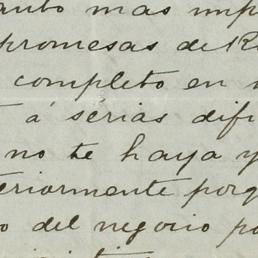 anto mas imp
promesas de R
completo en
á sérias difi
no te haya y
teriormente porq
o del negocio po